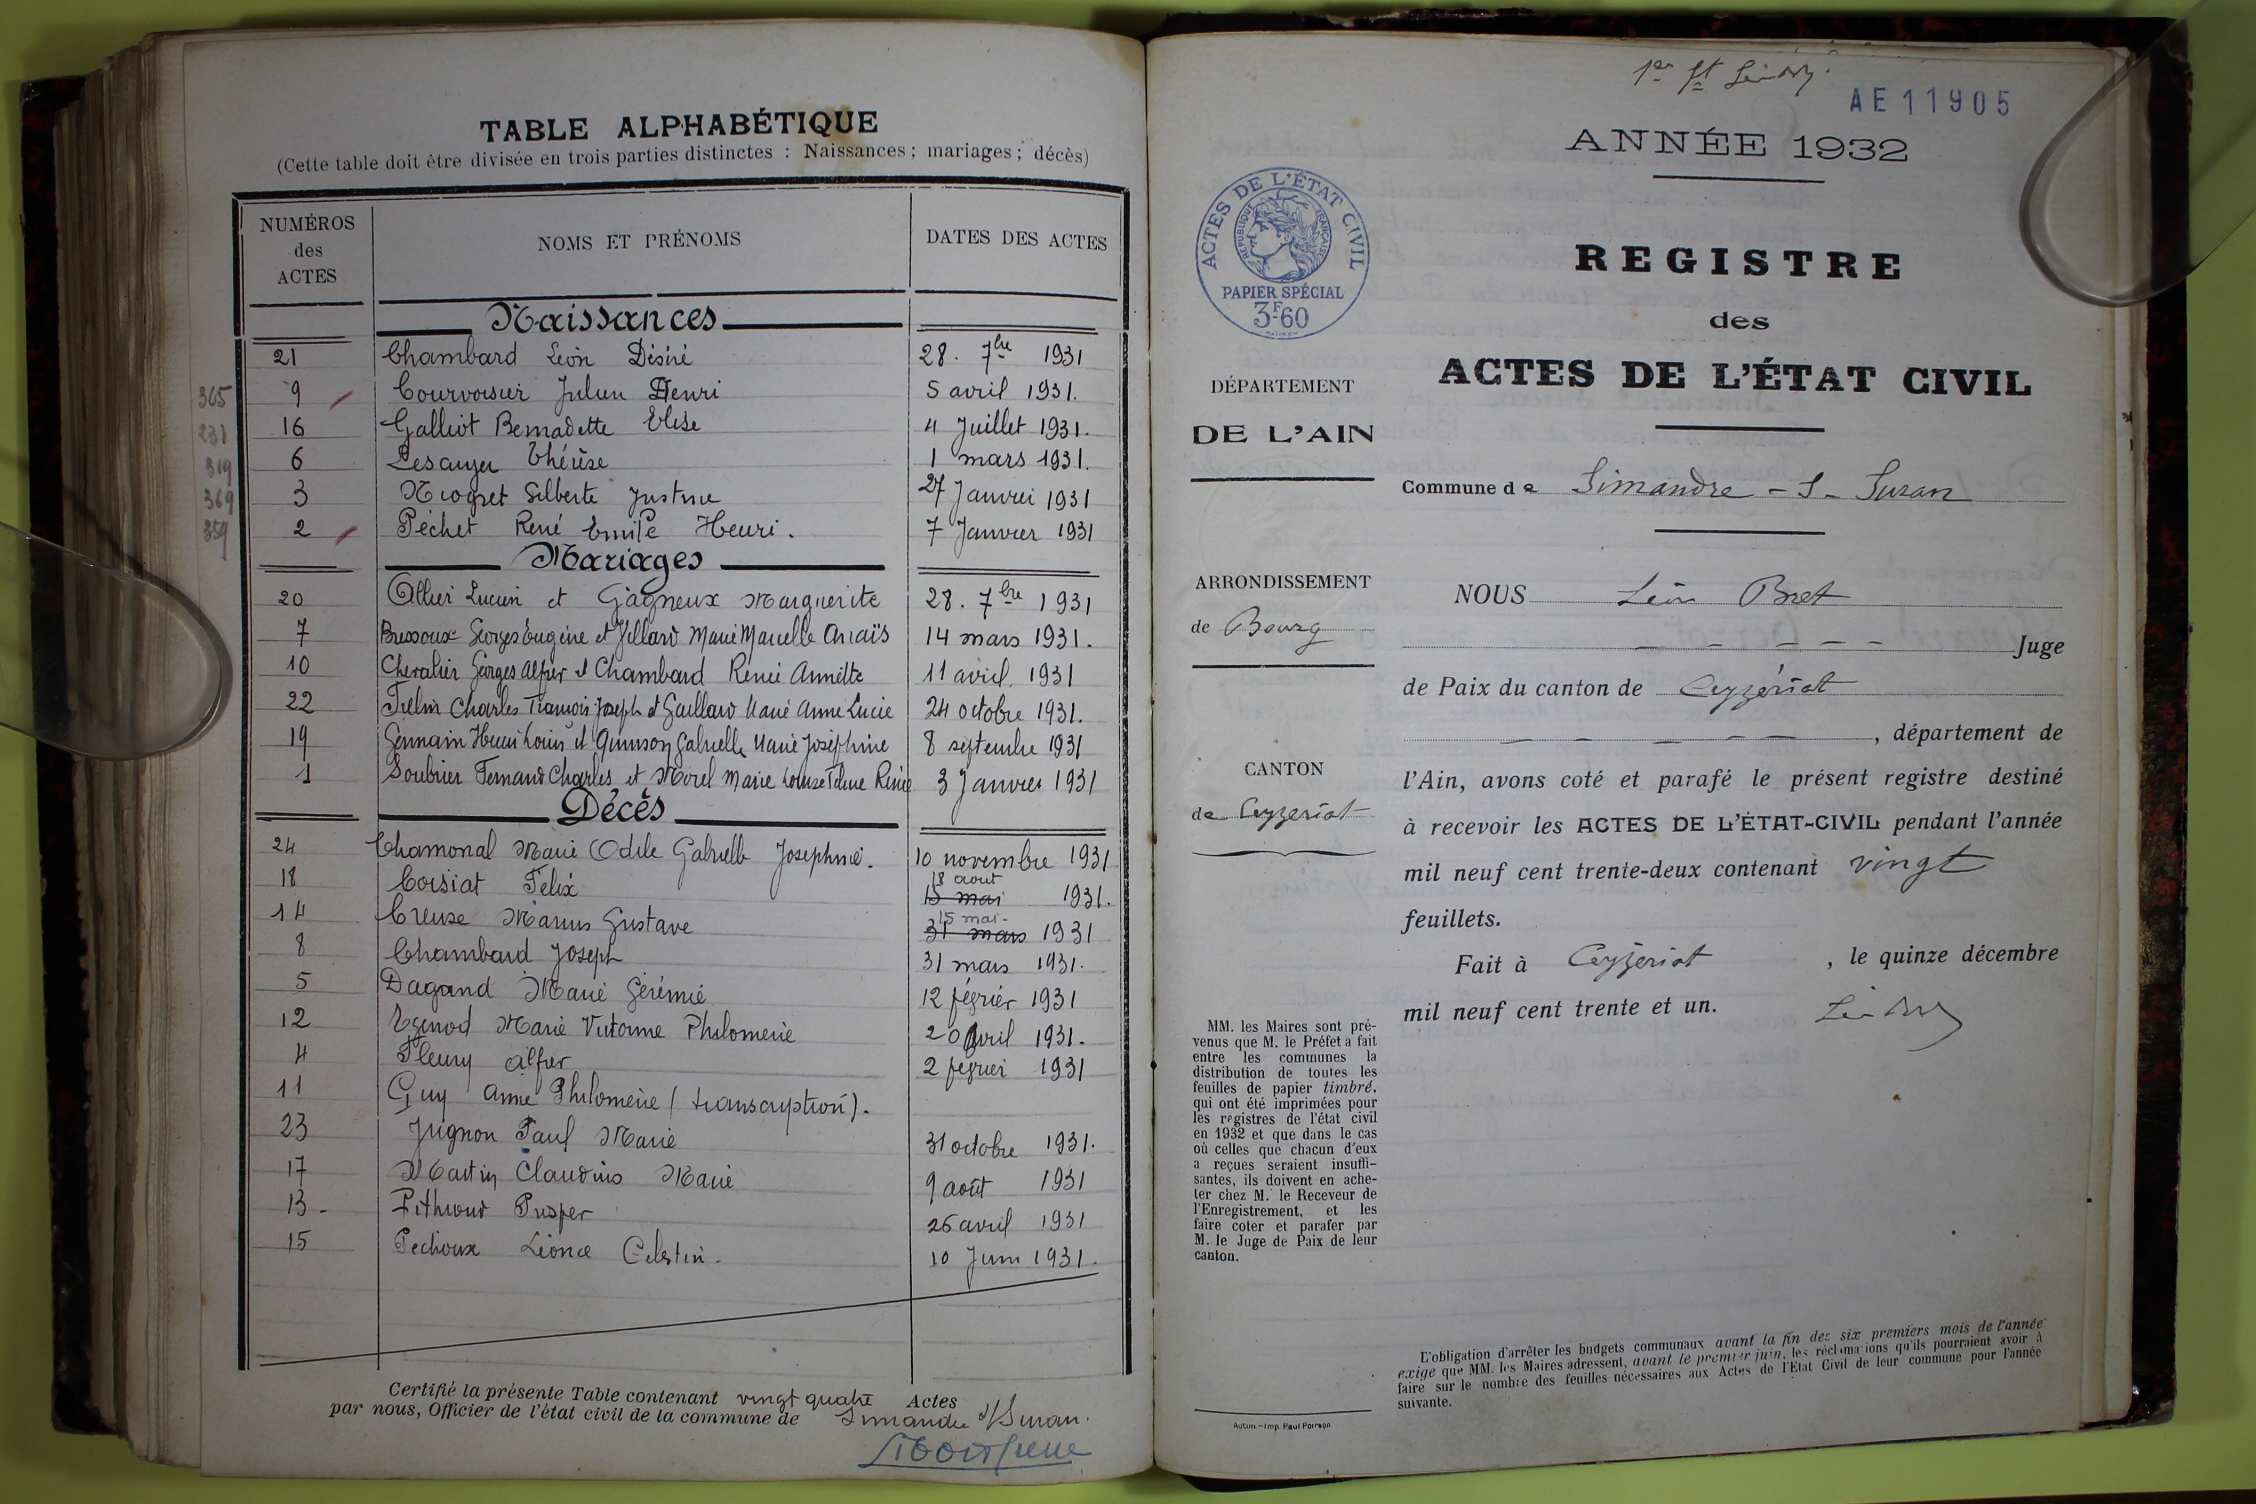 TABLE ALPHABÉTIQUE
(Cette table doit être divisée en trois parties distinctes : Naissances ; mariages ; décès)
NUMÉROS des ACTES NOMS ET PRÉNOMS DATES DES ACTES
Naissances
21 Chambard Léon Désiré 28. 7bre 1931
365 9 Courvoisier Julien Henri 5 avril 1931.
231 16 Galliot Bernadette Elise 4 Juillet 1931.
319 6 Thérèse 1 mars 1931.
369 3 Niogret Gilberte Justine 27 Janvier 1931
359 2 Péchet René Emile Henri. 7 Janvier 1931
Mariages
20 Ollier Lucien et Gagneux Marguerite 28. 7bre 1931
7 Bressoux Georges Eugène et Villard Marie Marcelle Anaïs 14 mars 1931.
10 Chevalier Georges Alfred et Chambard Renée Annette 11 avril 1931
22 Charles François Joseph et Gaillard Marie Anne Lucie 24 octobre 1931.
19 Germain Henri Louis et Quinson Gabrielle Marie Joséphine 8 septembre 1931
1 Soubrier Fernand Charles et Morel Marie Louise Renée 3 Janvier 1931
Décès
24 Chamonal Marie Odile Gabrielle Joséphine. 10 novembre 1931
18 Corsiat Félix 18 aout 15 mai 1931.
14 Creuse Marius Gustave 15 mai - 31 mars 1931
8 Chambard Joseph 31 mars 1931.
5 Dagand Marie Gérémie 12 février 1931
12 Marie Victorine Philomène 20 Avril 1931.
4 Fleury Alfred 2 février 1931
11 Guy Anne Philomène (transcription).
23 Jugnon Paul Marie 31 octobre 1931.
17 Martin Claudius Marie 9 août 1931
13 - Pithioud Prosper 26 avril 1931
15 Pechoux Léonce Célestin. 10 Juin 1931.
Certifié la présente Table contenant vingt quatre Actes
par nous, Officier de l'état civil de la commune de Simandre s/Suran.
1er ft Léon Bret
AE11905
ANNÉE 1932
ACTES DE L'ÉTAT CIVIL
RÉPUBLIQUE FRANÇAISE
PAPIER SPÉCIAL
3F60
REGISTRE
des
ACTES DE L'ÉTAT CIVIL
DÉPARTEMENT
DE L'AIN
Commune de Simandre - S - Suran
ARRONDISSEMENT
de Bourg
CANTON
de Ceyzeriat
NOUS Léon Bret
Juge
de Paix du canton de Ceyzériat
, département de
l'Ain, avons coté et parafé le présent registre destiné
à recevoir les ACTES DE L'ÉTAT-CIVIL pendant l'année
mil neuf cent trente-deux contenant vingt
feuillets.
Fait à Ceyzeriat , le quinze décembre
mil neuf cent trente et un.
Léon Bret
MM. les Maires sont pré-
venus que M. le Préfet a fait
entre les communes la
distribution de toutes les
feuilles de papier timbré,
qui ont été imprimées pour
les registres de l'état civil
en 1932 et que dans le cas
où celles que chacun d'eux
a reçues seraient insuffi-
santes, ils doivent en ache-
ter chez M. le Receveur de
l'Enregistrement, et les
faire coter et parafer par
M. le Juge de Paix de leur
canton.
L'obligation d'arrêter les budgets communaux avant la fin des six premiers mois de l'année
exige que MM. les Maires adressent, avant le premier juin, les réclamations qu'ils pourraient avoir à
faire sur le nombre des feuilles nécessaires aux Actes de l'Etat Civil de leur commune pour l'année
suivante.
Autun. - Imp. Paul Poirson